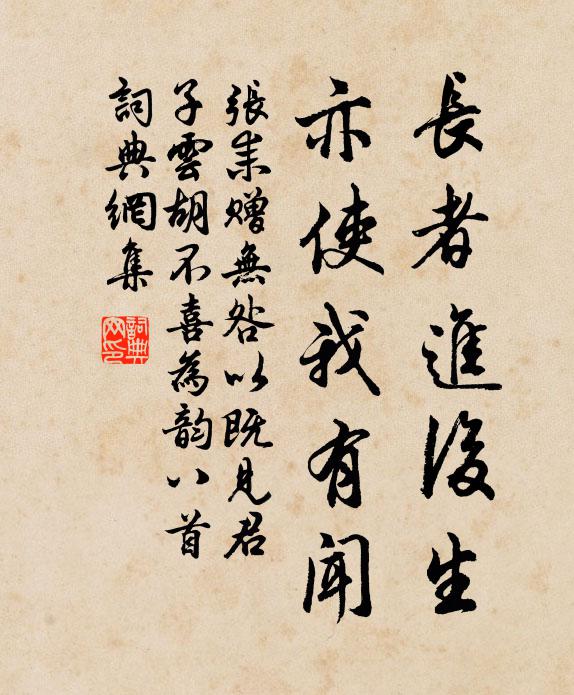 長者進後生
亦使我有聞
張耒贈無咎以既見君
子雲胡不喜為韵八首
詞典網集
詞典網印